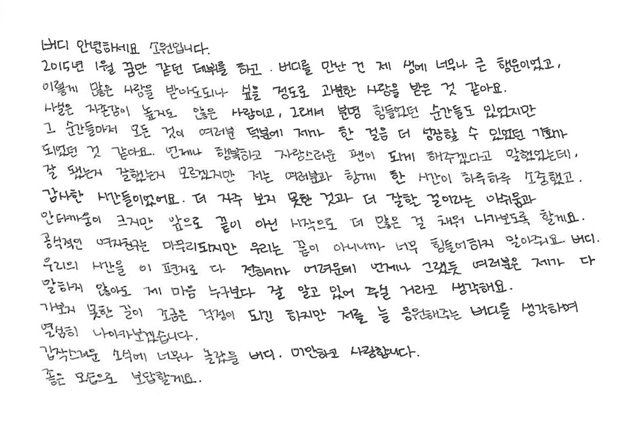 버디 안녕하세요 소원입니다.
2015년 1월 꿈만 같던 데뷔를 하고. 버디를 만난 건 제 생에 너무나 큰 행운이었고,
이렇게 많은 사랑을 받아도되나 싶을 정도로 과분한 사랑을 받은 것 같아요.
사실은 자존감이 높지도 않은 사람이고, 그래서 분명 힘들었던 순간들도 있었지만
그 순간들마저 모든 것이 여러분 덕분에 제가 한 걸음 더 성장할 수 있었던 기회가
되었던 것 같아요. 언제나 행복하고 자랑스러운 팬이 되게 해주겠다고 말했었는데,
잘 됐는지 잘했는지 모르겠지만 저는 여러분과 함께 한 시간이 하루하루 소중했고.
감사한 시간들이었어요. 더 자주 보지 못한 것과 더 잘할 걸이라는 아쉬움과
안타까움이 크지만 앞으로 끝이 아닌 시작으로 더 많은 걸 채워 나가보도록 할게요.
공식적인 여자친구는 마무리되지만 우리는 끝이 아니니까 너무 힘들어하지 말아주워요 버디.
우리의 시간을 이 편지로 다 전하기가 어려운데 언제나 그랬듯 여러분은 제가 다
말하지 않아도 제 마음 누구보다 잘 알고 있어 주실 거라고 생각해요.
가보지 못한 길이 조금은 걱정이 되긴 하지만 저를 늘 응원해주는 버디를 생각하며
열심히 나아가보겠습니다.
갑작스러운 소식에 너무나 놀랐을 버디. 미안하고 사랑합니다.
좋은 모습으로 보답할게요.